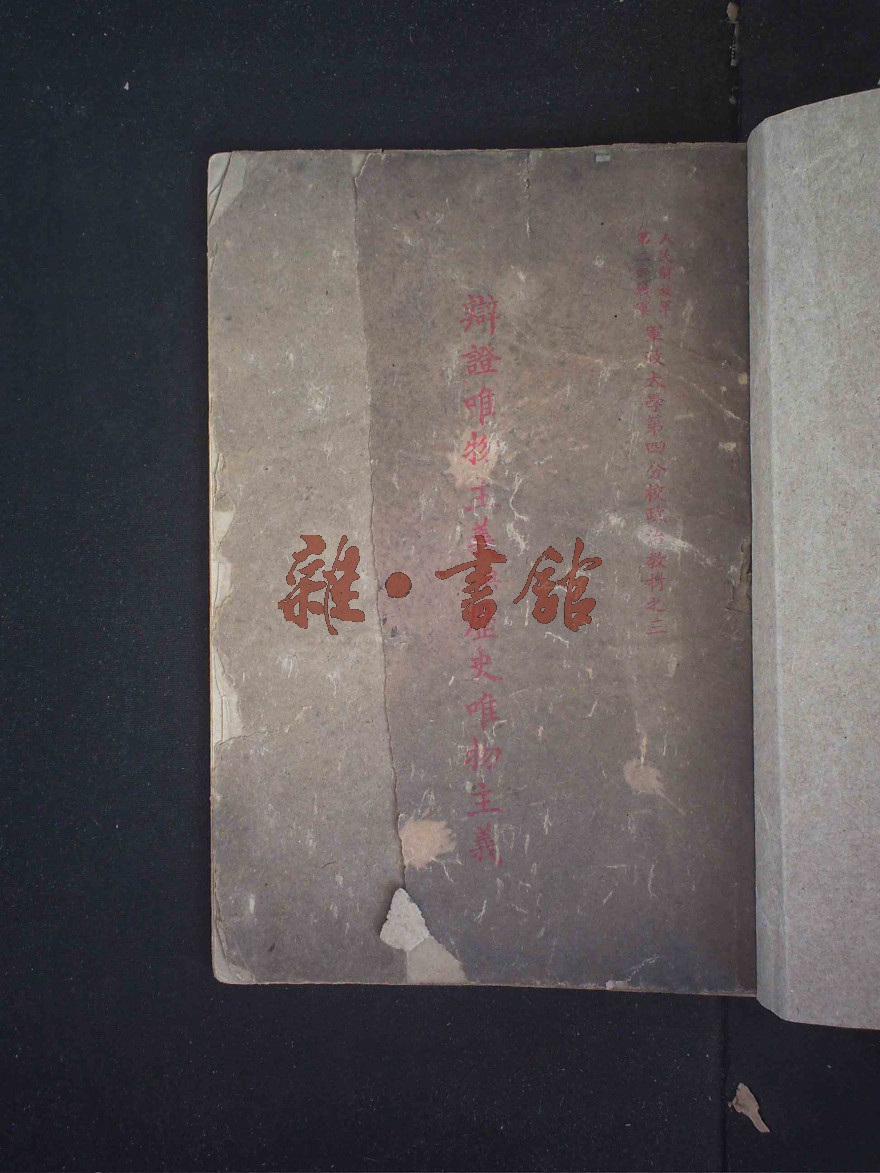 人民解放軍
第二野战軍
軍政大学第四分校政治教材之三
辯證唯物主義與歷史唯物主義
雜·書館